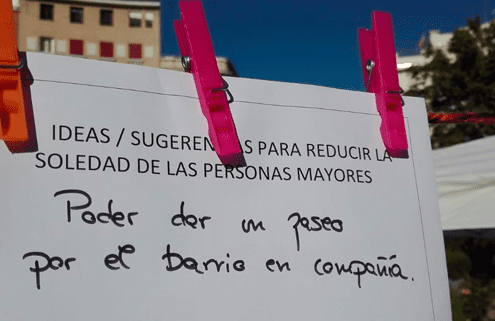 IDEAS / SUGERENCIAS PARA REDUCIR LA
SOLEDAD DE LAS PERSONAS MAYORES
Poder dar un paseo
por el barrio en compañía.